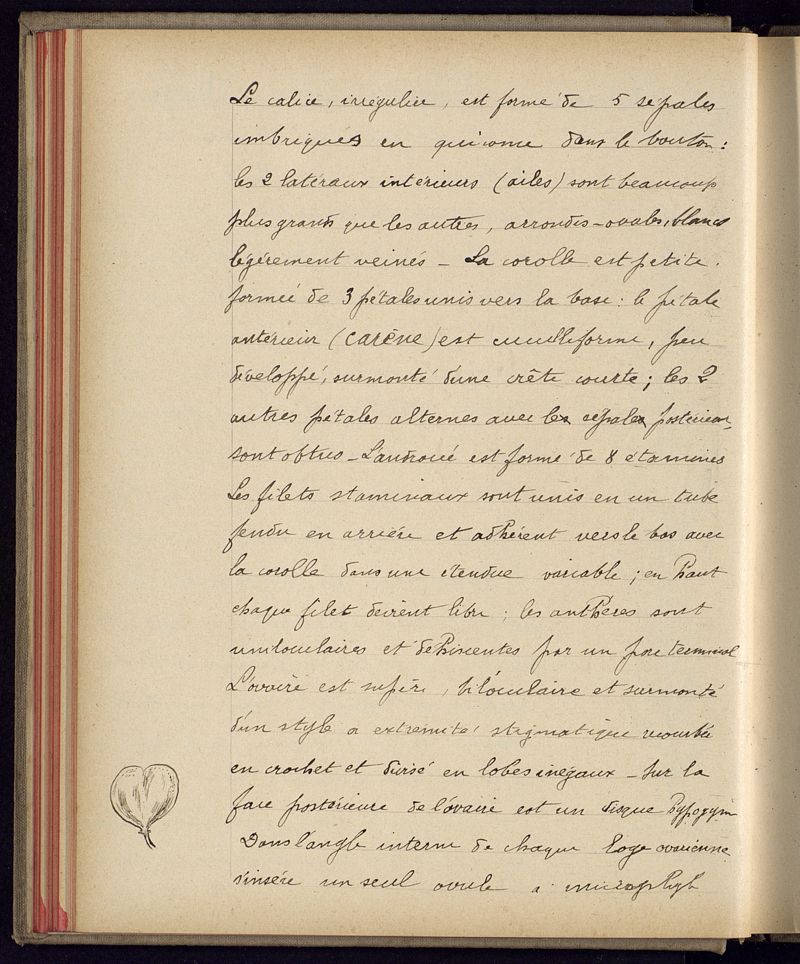 Le calice, irrégulier, est formé de 5 sépales
imbriqués en quiconce dans le bouton :
les 2 latéraux intérieurs (ailes) sont beaucoup
plus grands que les autres, arrondis-ovales, blancs
légèrement veinés – La corolle est petite.
formée de 3 pétales unis vers la base : le pétale
antérieur (carène) est cuculliforme, peu
développé, surmonté d'une crête courte ; les 2
autres pétales alternes avec les sépales postérieurs
sont obtus – L'androcé est formé de 8 étamines
Les filets staminaux sont unis en un tube
fendu en arrière et adhèrent vers le bas avec
la corolle dans une étendue variable ; en haut
chaque filet devient libre ; les anthères sont
uniloculaires et déhiscentes par un pore terminal
L'ovaire est supère, biloculaire et surmonté
d'un style a extrémité stigmatique recourbée
en crochet et divisé en lobes inégaux – Sur la
face postérieure de l'ovaire est un disque hypogyne
Dans l'angle interne de chaque loge ovarienne
s'insère un seul ovule a